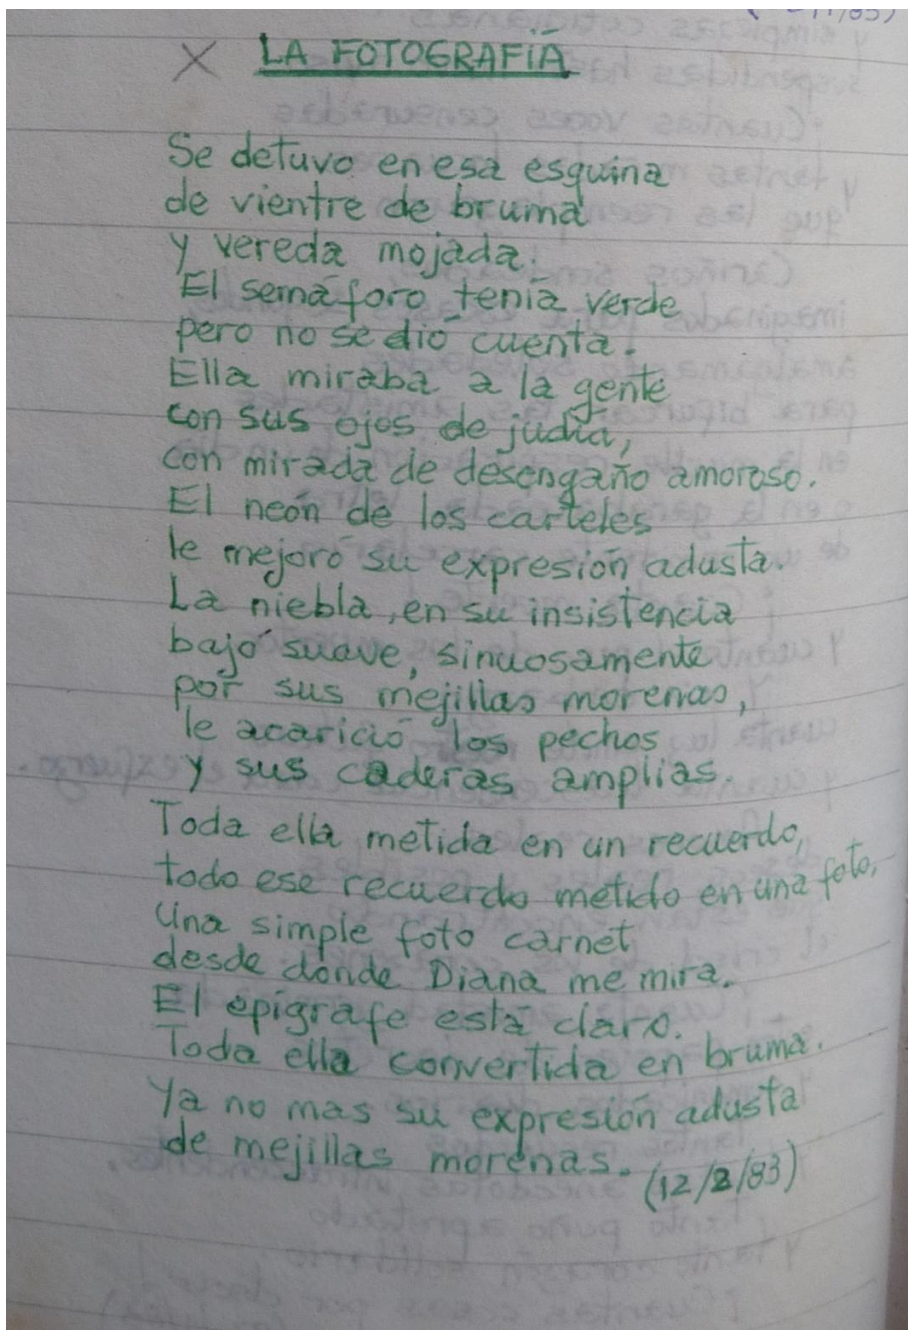 LA FOTOGRAFÍA
Se detuvo en esa esquina
de vientre de bruma
y vereda mojada.
El semáforo tenía verde
pero no se dió cuenta.
Ella miraba a la gente
con sus ojos de judía,
con mirada de desengaño amoroso.
El neón de los carteles
le mejoró su expresión adusta.
La niebla, en su insistencia
bajó suave, sinuosamente
por sus mejillas morenas,
le acarició los pechos
y sus caderas amplias.
Toda ella metida en un recuerdo,
todo ese recuerdo metido en una foto,
Una simple foto carnet
desde dónde Diana me mira.
El epígrafe está claro.
Toda ella convertida en bruma.
Ya no mas su expresión adusta
de mejillas morenas.
(12/2/83)